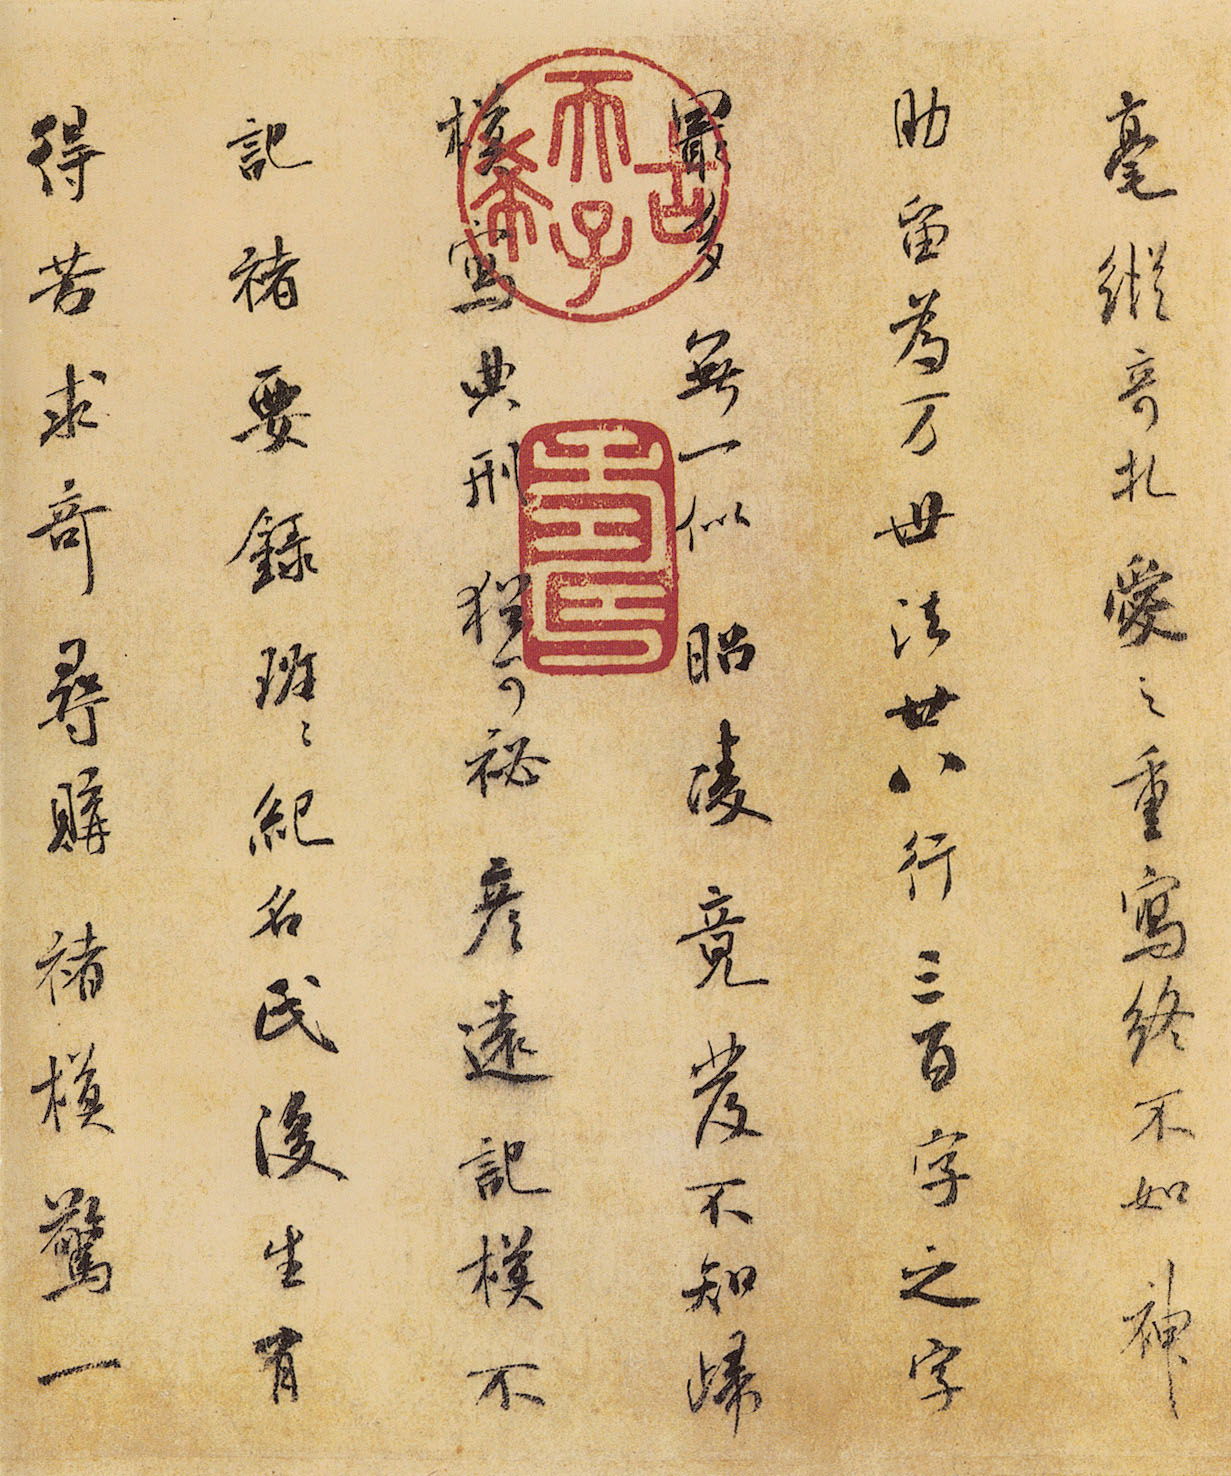 毫縱奇札愛之重寫終不如神
助留為万世法廿八行三百字之字
寂多無一似昭陵竟發不知歸
模寫典刑猶可祕彥遠記模不
記褚要錄班〻紀名氏後生有
得苦求奇尋購褚模驚一